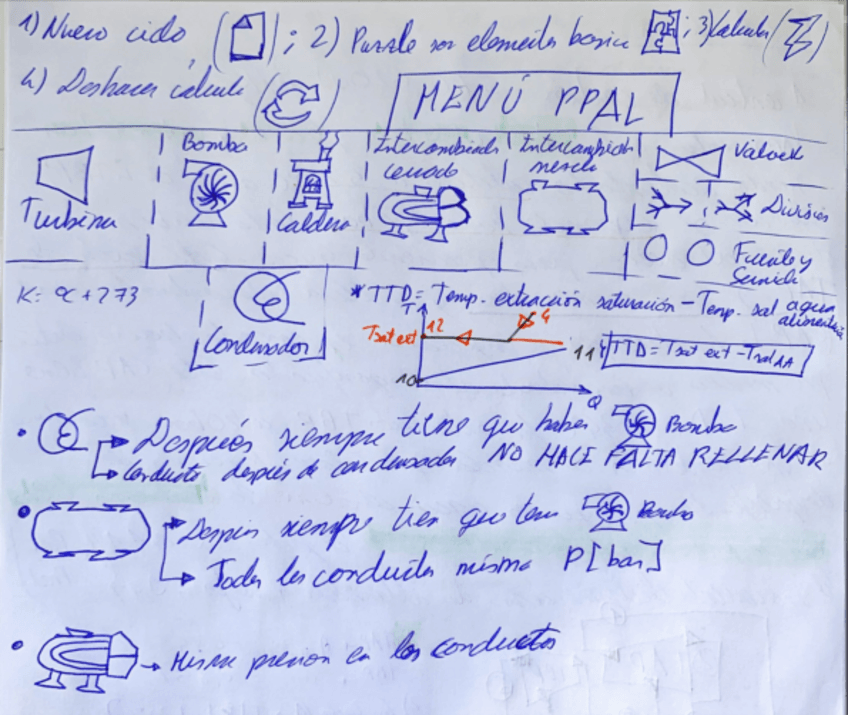 1) Nuevo ciclo, ( ); 2) Puzzle son elementos basico ; 3) Calcular ( )
4) Deshacer cálculo ( )
MENÚ PPAL
Turbina
Bomba
Caldera
Intercambiador cerrado
Intercambiador mezcla
Válvula
División
Fuente y Sumide
K = ºC + 273
Condensador
* TTD = Temp. extracción saturación - Temp. sal agua alimentación
T
Tsat ext 12
4
11
10
Q
TTD = Tsat ext - Tsal AA
• Después siempre tiene que haber Bomba
Conducto después de condensador NO HACE FALTA RELLENAR
• Después siempre tien que tener Bomba
Todos los conductos misma P [bar]
• → Misma presion en los conductos